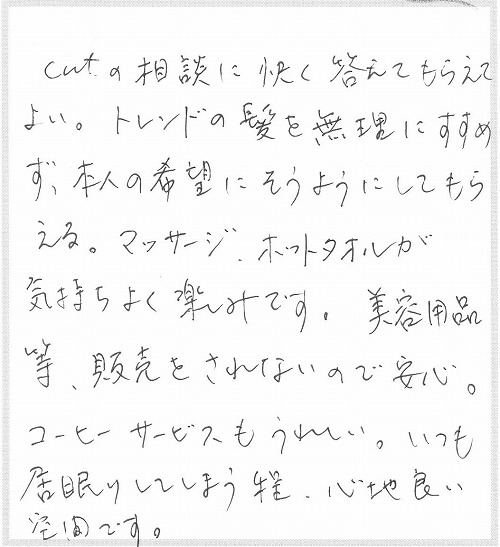 cutの相談に快く答えてもらえて
よい。トレンドの髪を無理にすすめ
ず、本人の希望にそうようにしてもら
える。マッサージ、ホットタオルが
気持ちよく楽しみです。美容用品
等、販売をされないので安心。
コーヒーサービスもうれしい。いつも
居眠りしてしまう程、心地良い
空間です。